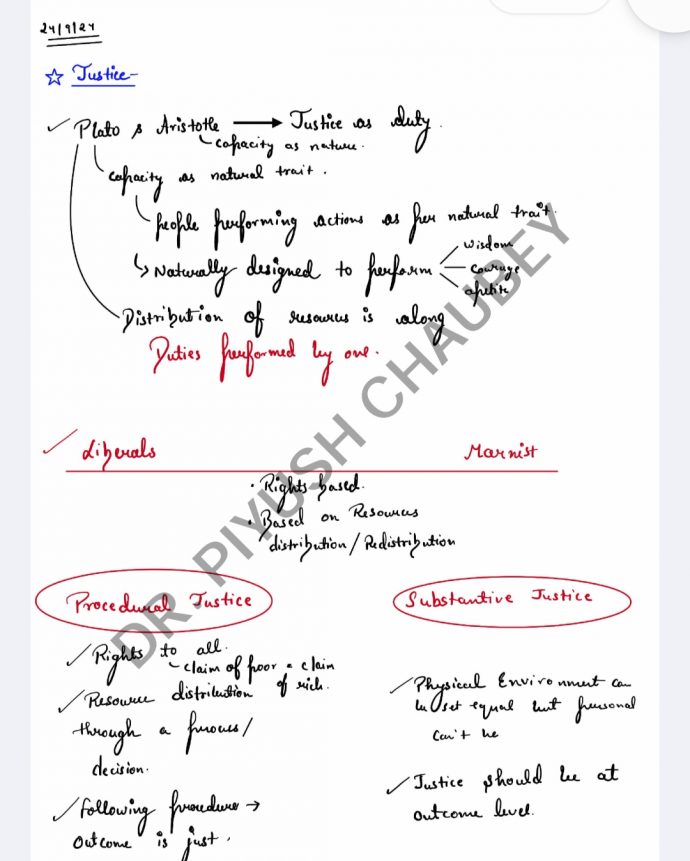 24/9/24
☆ Justice-
✓ Plato & Aristotle → Justice as duty.
capacity as nature.
capacity as natural trait.
people performing actions as per natural trait.
↳ Naturally designed to perform
wisdom
courage
apetite
Distribution of resources is along
Duties performed by one.
✓ Liberals Marxist
• Rights based.
• Based on Resources
distribution/Redistribution
Procedural Justice
✓ Rights to all.
claim of poor = claim
of rich.
✓ Resource distribution
through a process/
decision.
✓ following procedure →
outcome is just.
Substantive Justice
✓ Physical Environment can
be set equal but personal
can't be
✓ Justice should be at
outcome level.
DR. PIYUSH CHAUBEY